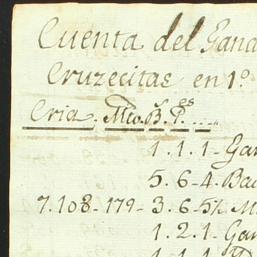 Cuenta del Gana
Cruzecitas en 1º
Cria, Mw. B. P.es
1. 1. 1 - Gan
5. 6 - 4. Bac
7.108 - 179 - 3. 6. 5½ M
1. 2. 1 - Gan